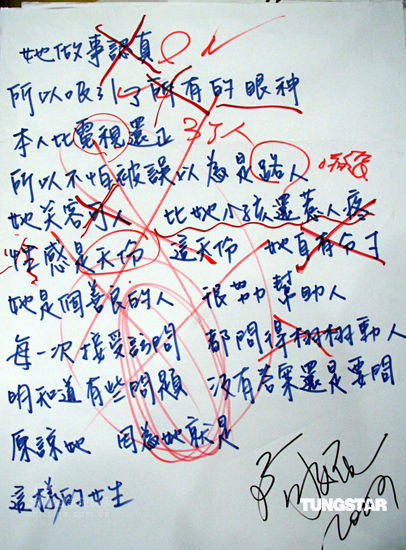 她做事認真
所以吸引了所有的眼神
本人比電視還正 3了人
所以不怕被誤以為是路人
她笑容可人 比她小孩還惹人疼
性感是天份 這天份 她自有分寸
她是個善良的人 很努力幫助人
每一次接受訪問 都問得栩栩動人
明知道有些問題 沒有答案還是要問
原諒她 因為她就是
這樣的女生
2009
TUNGSTAR